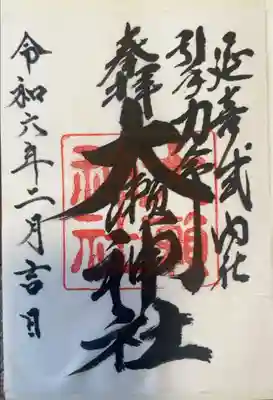 延喜式内社
引手力命
奉拝
大瀬神社
令和六年二月吉日